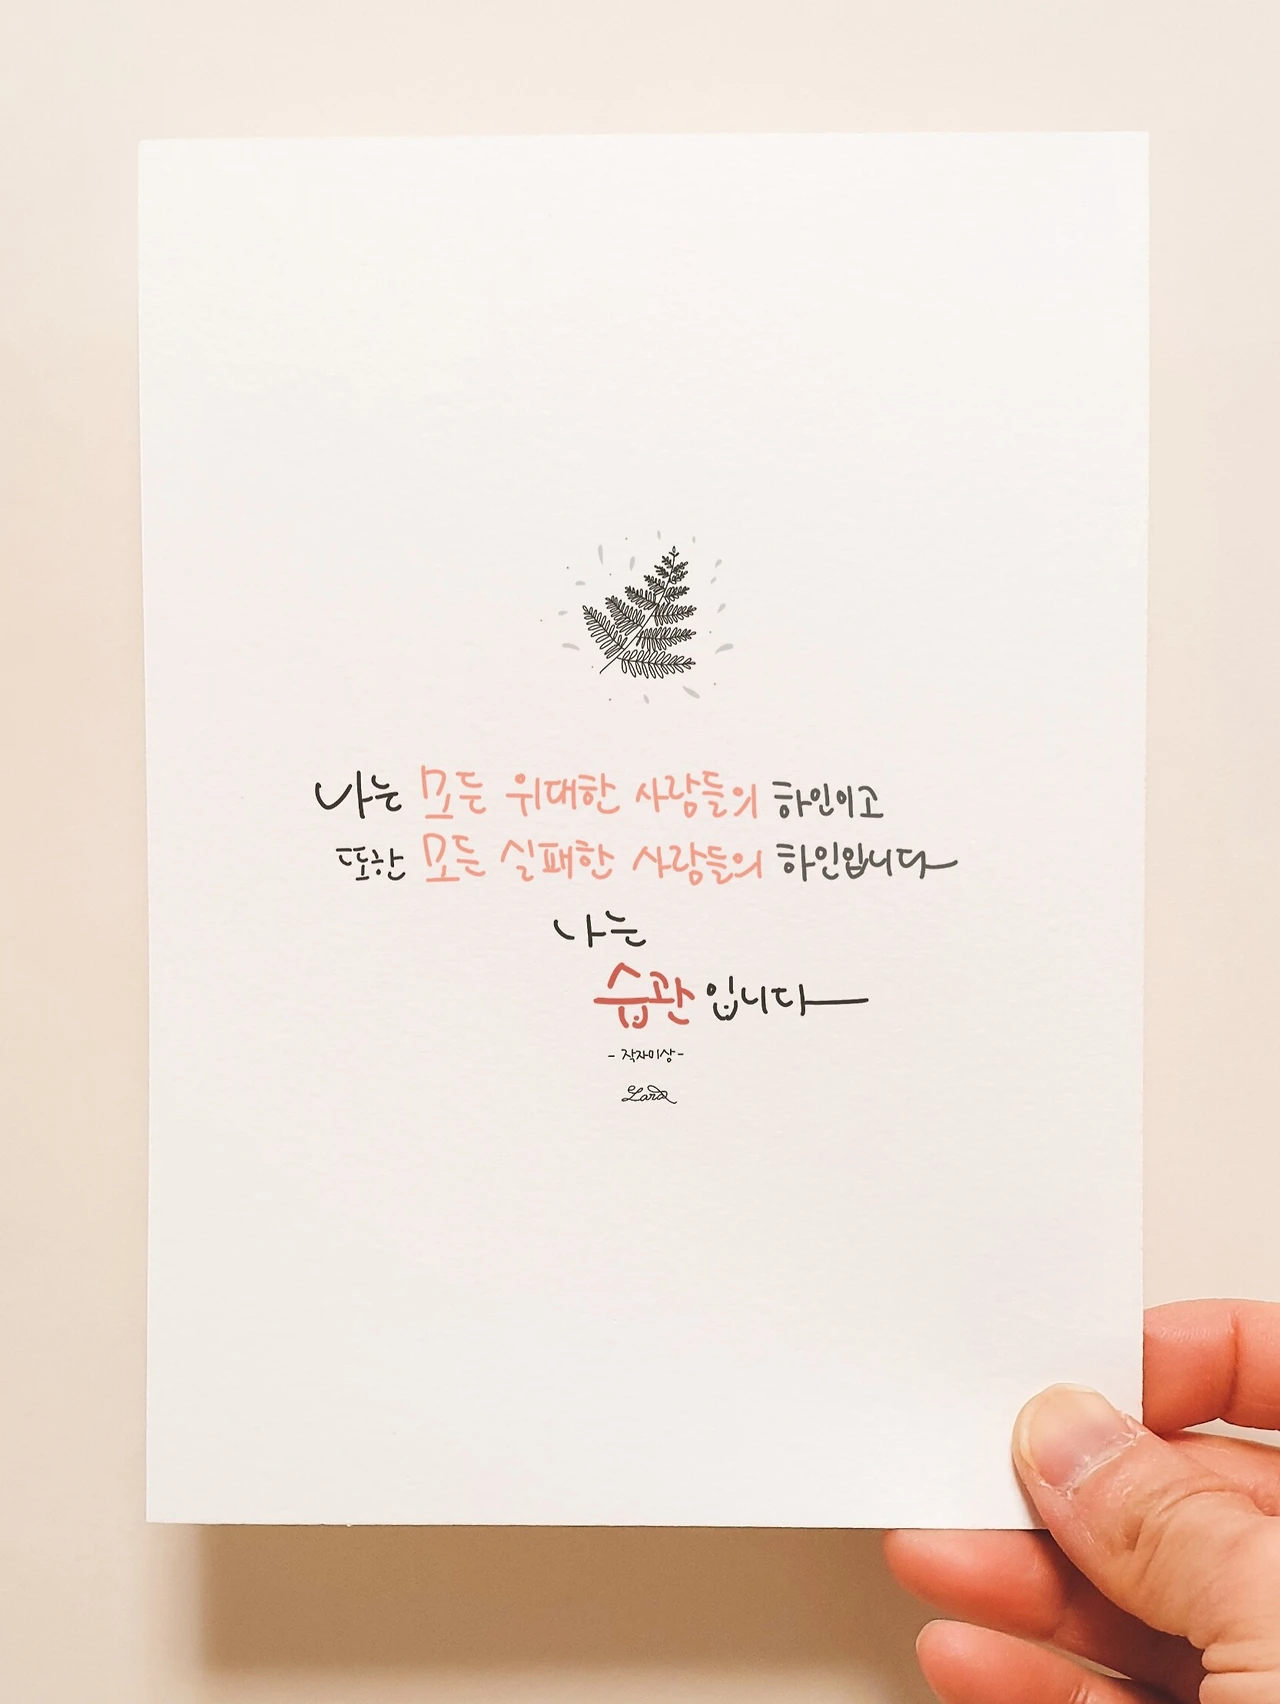 나는 모든 위대한 사람들의 하인이고
또한 모든 실패한 사람들의 하인입니다
나는
습관입니다
- 작자미상 -
Lara